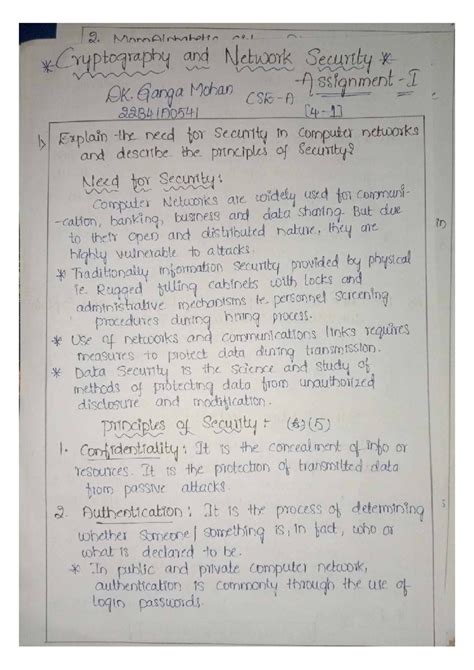 2. MonoAlphabetic
* Cryptography and Network Security *
- Assignment - I
DK. Ganga Mohan
CSE-A
[4-1]
22B41A0541
1) Explain the need for Security in Computer networks
and describe the principles of Security?
Need for Security:
Computer Networks are widely used for communi-
-cation, banking, business and data sharing. But due
to their open and distributed nature, they are
highly vulnerable to attacks.
* Traditionally information security provided by physical
ie. Rugged filling cabinets with locks and
administrative mechanisms ie. personnel screening
procedures during hiring process.
* Use of networks and communications links requires
measures to protect data during transmission.
* Data Security is the science and study of
methods of protecting data from unauthorized
disclosure and modification.
principles of Security :- (5)
1. Confidentiality: It is the concealment of info or
resources. It is the protection of transmitted data
from passive attacks.
2. Authentication: It is the process of determining
whether someone/something is, in fact, who or
what is declared to be.
* In public and private computer network,
authentication is commonly through the use of
login passwords.